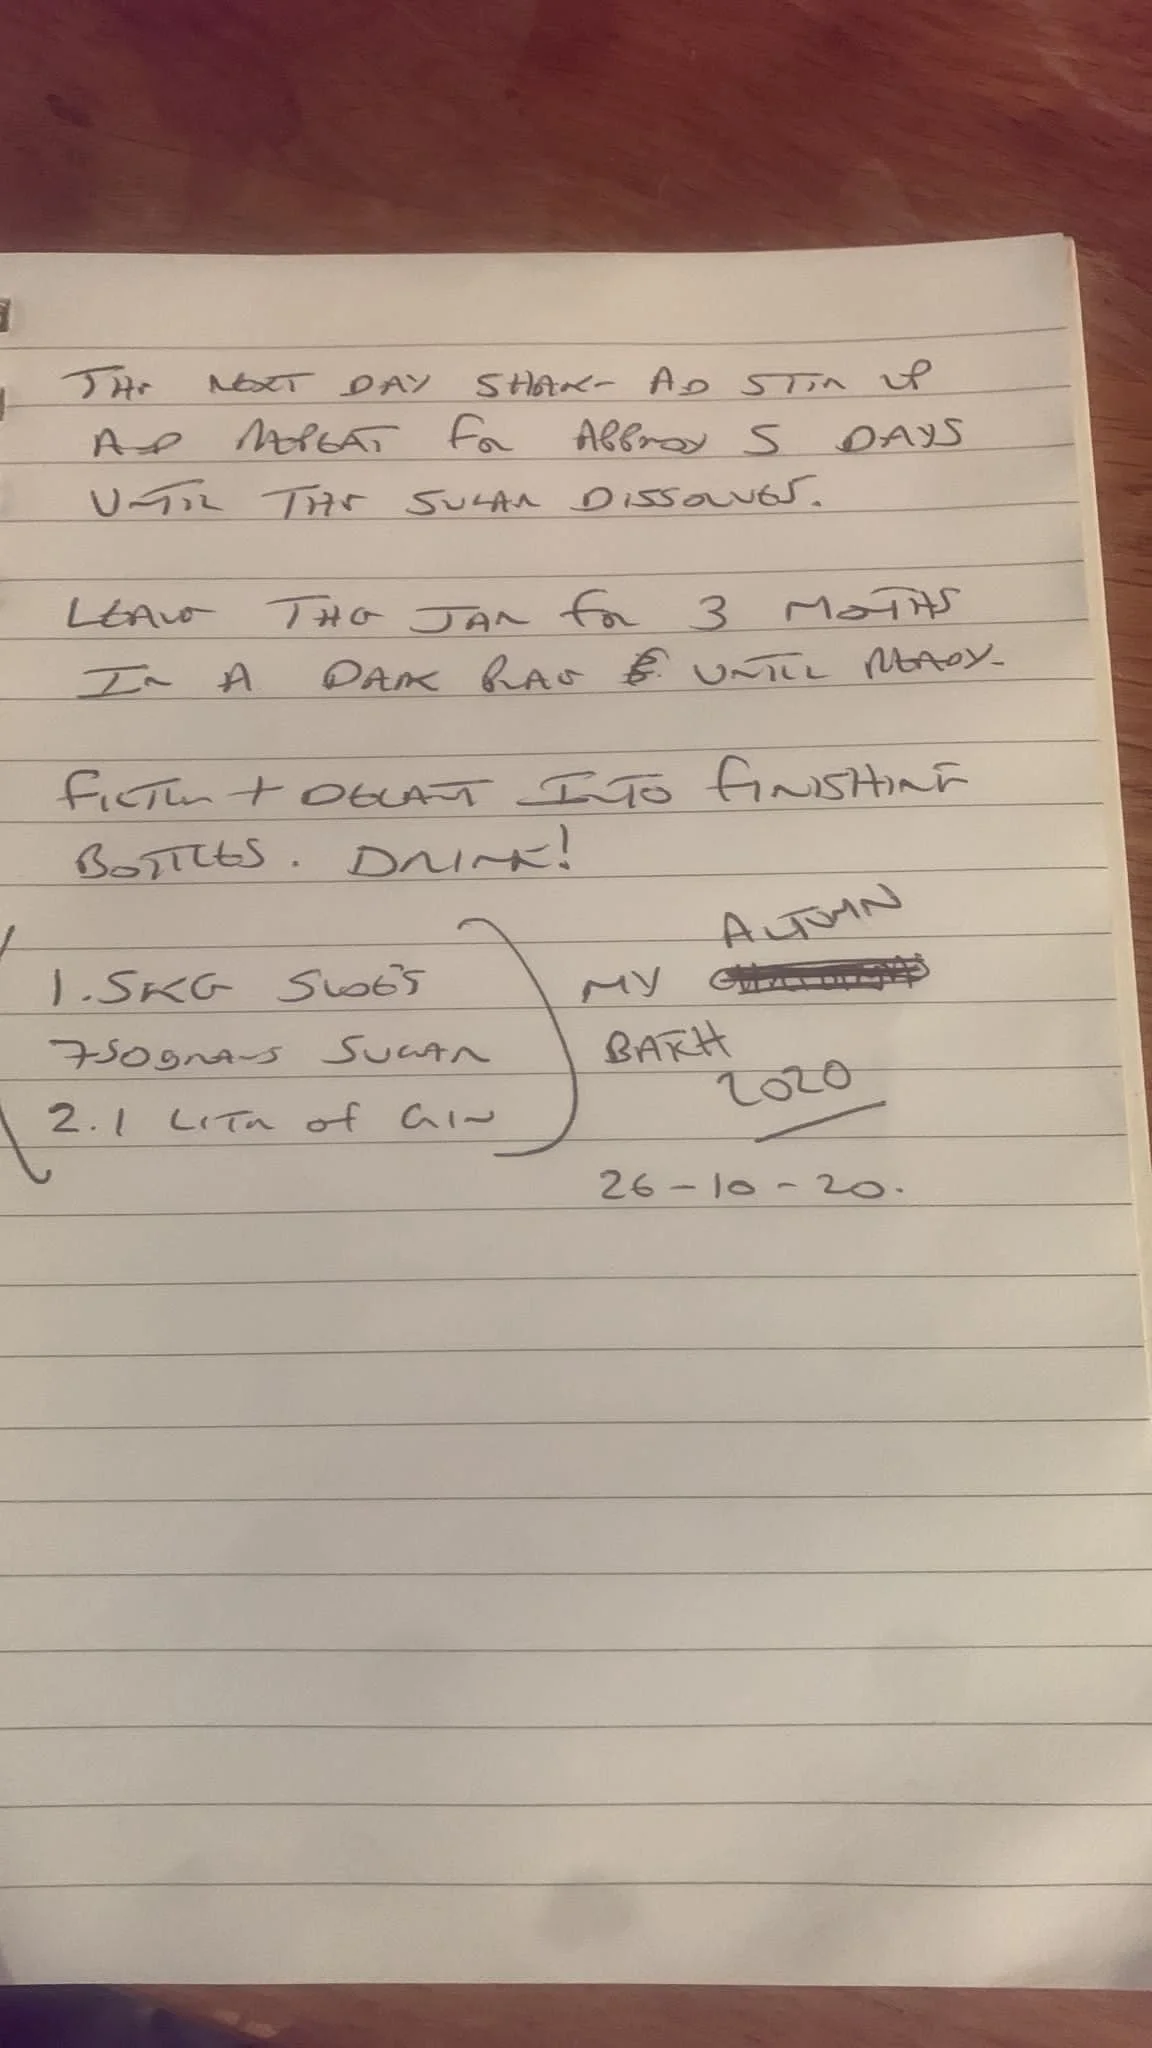 THE NEXT DAY SHAKE AD STIR UP
AND REPEAT FOR APPROX 5 DAYS
UNTIL THE SUGAR DISSOLVES.
LEAVE THE JAR FOR 3 MOTHS
IN A DARK PLACE UNTIL READY.
FILTER + DECANT INTO FINISHING
BOTTLES. DRINK!
1.5KG SLOE'S
750grams SUGAR
2.1 LITR of GIN
MY AUTUMN
BATCH
2020
26-10-20.